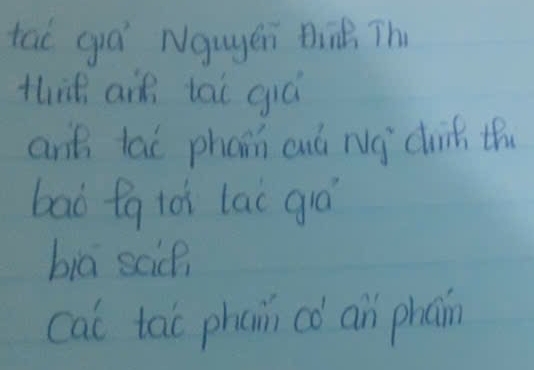 tác giả Nguyễn Đình Thi
Hình ảnh tác giả
ảnh tác phẩm của Ng đình thi
báo tới tác giả
bìa sách
Các tác phẩm có ấn phẩm